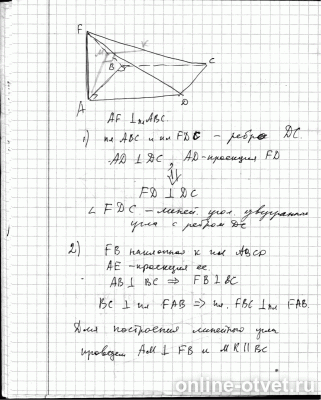 F
M
K
B
C
A
D
AF ⊥ пл ABC.
1) пл ABC и пл FDC – ребро DC.
AD ⊥ DC, AD – проекция FD
⇓
FD ⊥ DC
∠ FDC – линей угол двугранного
угла с ребром DC
2) FB наклонная к пл ABCD
AE – проекция ее
AB ⊥ BC ⇒ FB ⊥ BC
BC ⊥ пл FAB ⇒ пл. FBC ⊥ пл FAB.
Для построения линейного угла
проведем AM ⊥ FB и MK || BC
online-otvet.ru